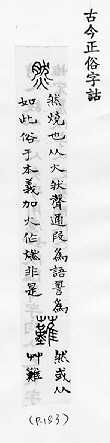 古今正俗字詁
然
然燒也从火肰聲通叚為語為
如此俗于本義加火作燃非是
䕼
然或从
艸難
(P.183)